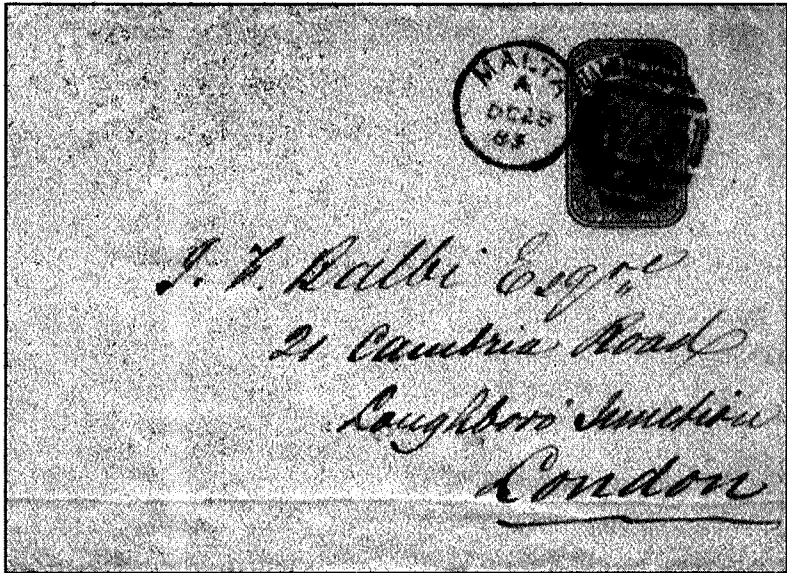 MALTA
A
DE 28
83
J. F. Balbi Esqre
21 Cambria Road
Loughboro' Junction
London